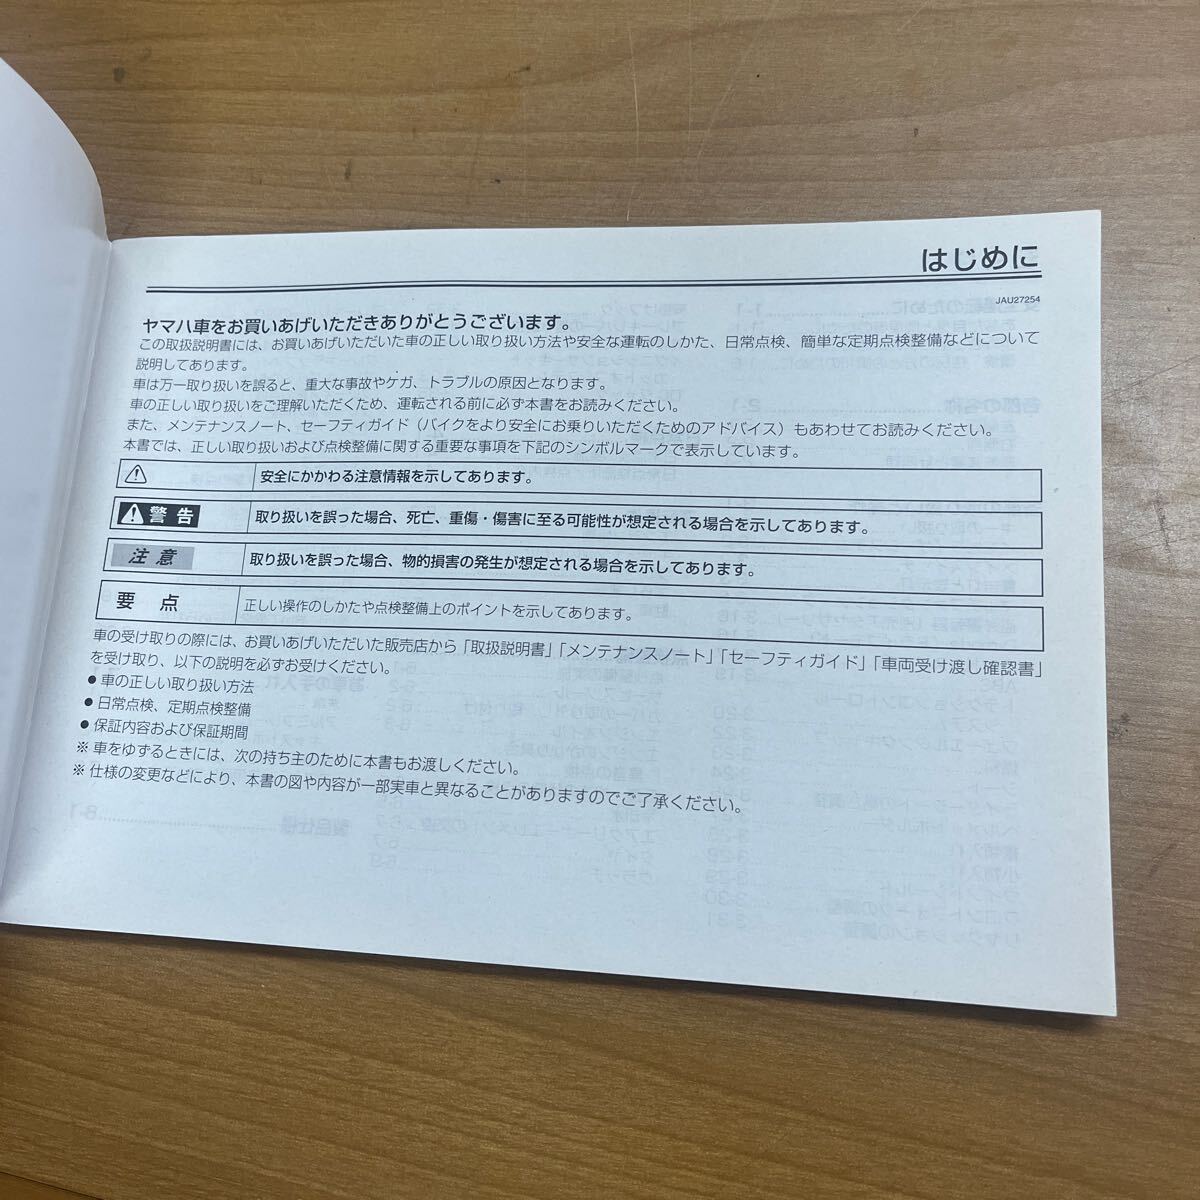 はじめに
JAU27254
ヤマハ車をお買いあげいただきありがとうございます。
この取扱説明書には、お買いあげいただいた車の正しい取り扱い方法や安全な運転のしかた、日常点検、簡単な定期点検整備などについて
説明してあります。
車は万一取り扱いを誤ると、重大な事故やケガ、トラブルの原因となります。
車の正しい取り扱いをご理解いただくため、運転される前に必ず本書をお読みください。
また、メンテナンスノート、セーフティガイド（バイクをより安全にお乗りいただくためのアドバイス）もあわせてお読みください。
本書では、正しい取り扱いおよび点検整備に関する重要な事項を下記のシンボルマークで表示しています。
安全にかかわる注意情報を示してあります。
警告 取り扱いを誤った場合、死亡、重傷・傷害に至る可能性が想定される場合を示してあります。
注意 取り扱いを誤った場合、物的損害の発生が想定される場合を示してあります。
要点 正しい操作のしかたや点検整備上のポイントを示してあります。
車の受け取りの際には、お買いあげいただいた販売店から「取扱説明書」「メンテナンスノート」「セーフティガイド」「車両受け渡し確認書」
を受け取り、以下の説明を必ずお受けください。
● 車の正しい取り扱い方法
● 日常点検、定期点検整備
● 保証内容および保証期間
※ 車をゆずるときには、次の持ち主のために本書もお渡しください。
※ 仕様の変更などにより、本書の図や内容が一部実車と異なることがありますのでご了承ください。